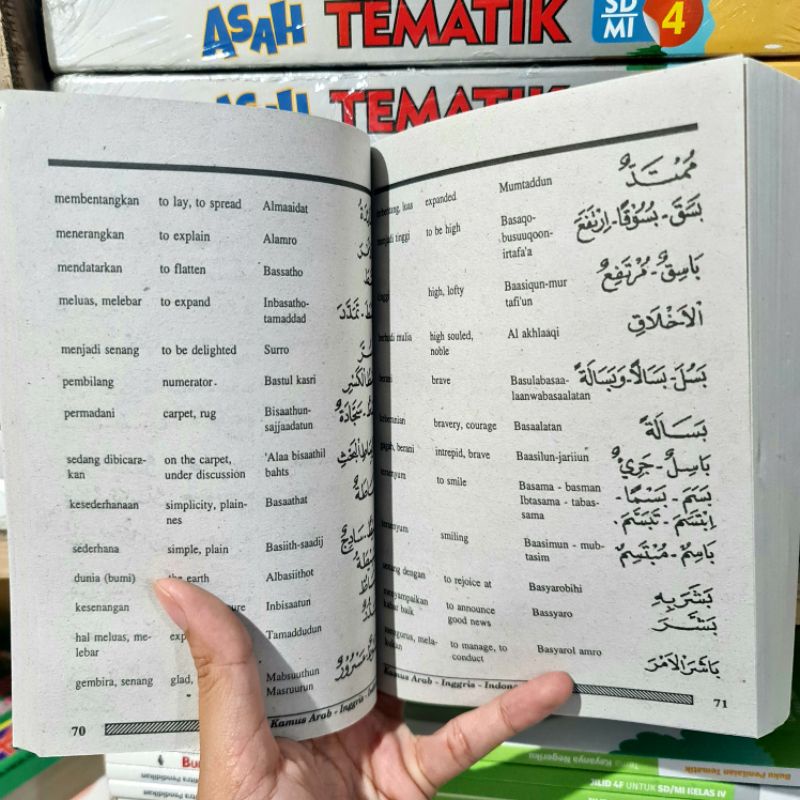 ASAH TEMATIK SD MI 4
ASAH TEMATIK
membentangkan to lay, to spread Almaaidat
menerangkan to explain Alamro
mendatarkan to flatten Bassatho
meluas, melebar to expand Inbasatho-
tamaddad
menjadi senang to be delighted Surro
pembilang numerator Bastul kasri
permadani carpet, rug Bisaathun-
sajjaadatun
sedang dibicara- on the carpet, 'Alaa bisaathil
kan under discussion bahts
kesederhanaan simplicity, plain- Basaathat
nes
sederhana simple, plain Basiith-saadij
dunia (bumi) the earth Albasiithot
kesenangan Inbisaatun
hal meluas, me- Tamaddudun
lebar
gembira, senang glad, Mabsuuthun
Masruurun
70 Kamus Arab - Inggris -
luas expanded Mumtaddun مُمْتَدٌّ
tinggi to be high Basaqo- بَسَقَ - بُسُوْقًا - اِرْتَفَعَ
busuuqoon-
irtafa'a
high, lofty Baasiqun-mur بَاسِقٌ - مُرْتَفِعٌ
tafi'un
mulia high souled, Al akhlaaqi الْاَخْلَاقِ
noble
brave Basulabasaa- بَسُلَ - بَسَالًا - وَبَسَالَةً
laanwabasaalatan
bravery, courage Basaalatan بَسَالَةً
berani intrepid, brave Baasilun-jariiun بَاسِلٌ - جَرِيْءٌ
to smile Basama - basman بَسَمَ - بَسْمًا -
Ibtasama - tabas- اِبْتَسَمَ - تَبَسَّمَ.
sama
smiling Baasimun - mub- بَاسِمٌ - مُبْتَسِمٌ
tasim
dengan to rejoice at Basyarobihi بَشَرَ بِهِ
menyampaikan to announce Bassyaro بَشَّرَ
kabar baik good news
mela- to manage, to Basyarol amro بَاشَرَ الْاَمْرَ
conduct
Kamus Arab - Inggris - 71
Buku Penilaian Tematik
JILID 4F UNTUK SD/MI KELAS IV